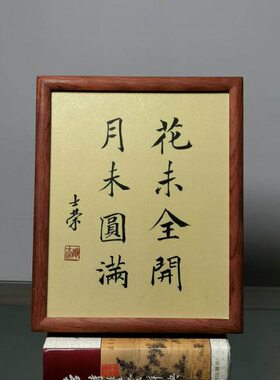 花未全開
月未圓滿
士荣